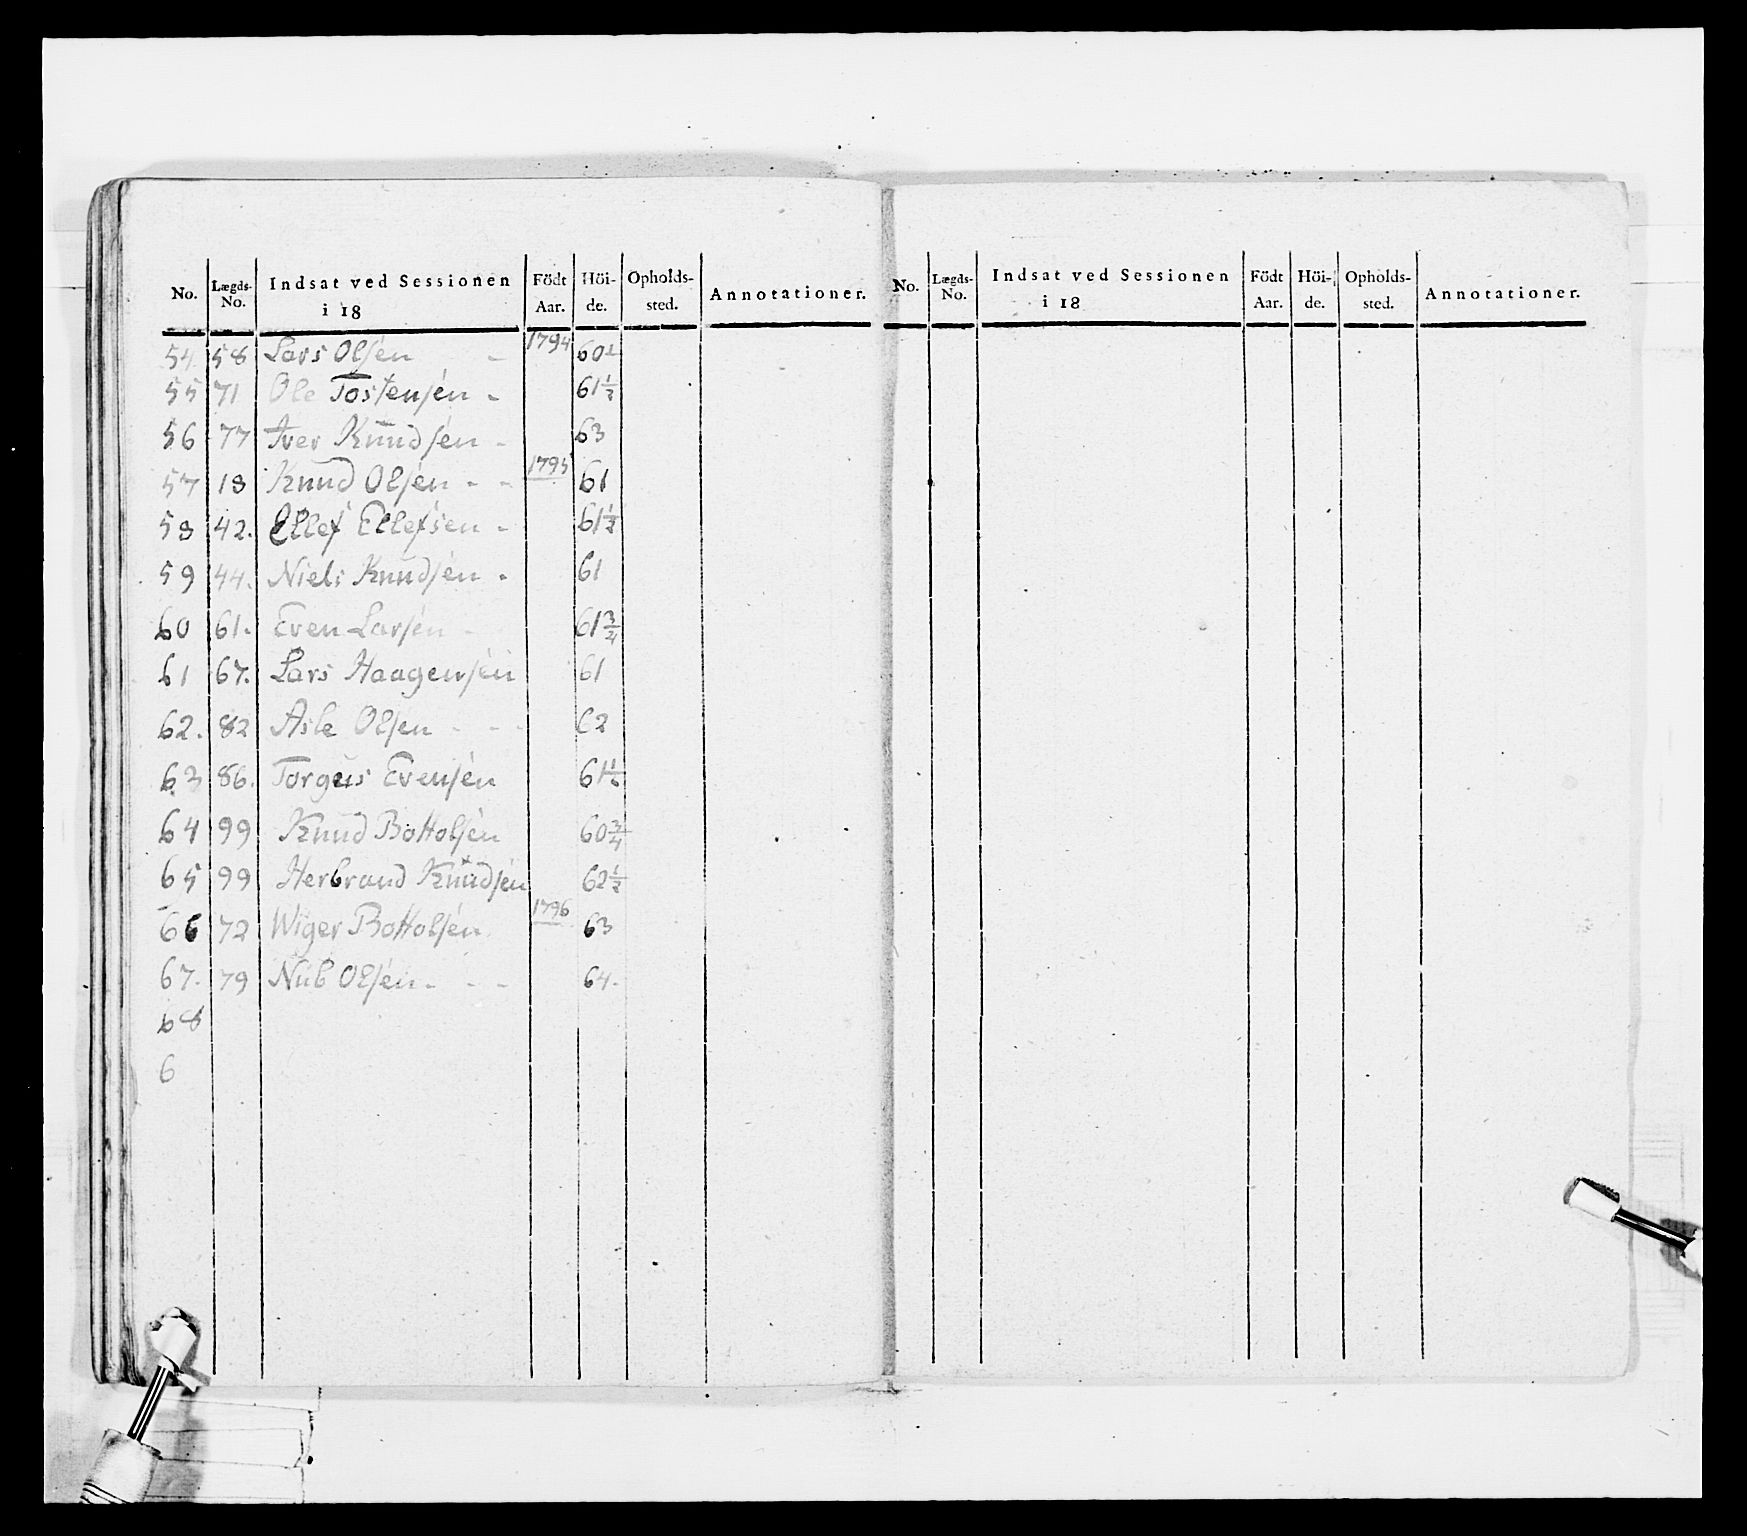 No. Lægds-No. Indsat ved Sessionen i 18 Födt Aar. Höide. Opholds-sted. Annotationer.
54 58 Lars Olsen - 1794 60½
55 71 Ole Tostensen - 61½
56 77 Iver Knudsen - 63
57 18 Knud Olsen - - 1795 61
58 42. Ellef Ellefsen - 61½
59 44. Niels Knudsen - 61
60 61. Even Larsen - 61¾
61 67. Lars Haagensen 61
62. 82 Asle Olsen - - 62
63 86. Torgus Evensen 61½
64 99 Knud Bottolsen 60¾
65 99 Herbrand Knudsen 62½
66 72 Wiger Bottolsen 1796 63
67. 79 Nub Olsen - - - 64.
68
6
No. Lægds-No. Indsat ved Sessionen i 18 Födt Aar. Höi-de. Opholds-sted. Annotationer.